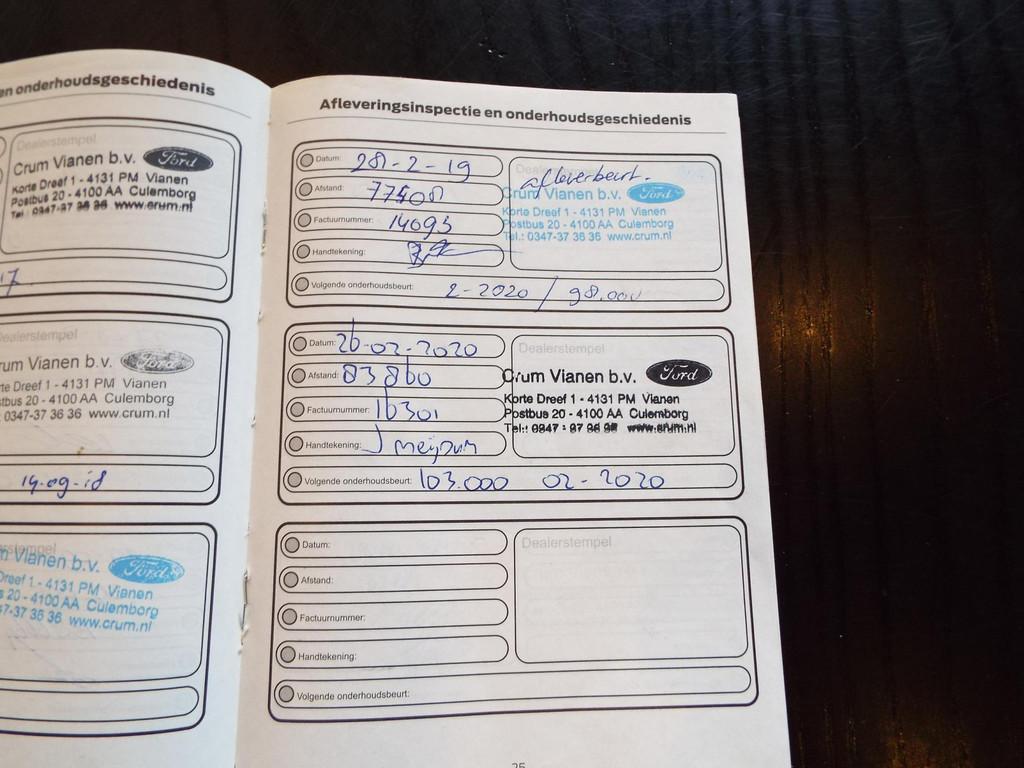 en onderhoudsgeschiedenis
Dealerstempel
Crum Vianen b.v. Ford
Korte Dreef 1 - 4131 PM Vianen
Postbus 20 - 4100 AA Culemborg
Tel.: 0347-37 36 36 www.crum.nl
17.
Dealerstempel
rum Vianen b.v. Ford
te Dreef 1 - 4131 PM Vianen
tbus 20 - 4100 AA Culemborg
0347-37 36 36 www.crum.nl
14-09-18
rstempel
m Vianen b.v. Ford
Dreef 1 - 4131 PM Vianen
s 20 - 4100 AA Culemborg
7-37 36 36 www.crum.nl
Afleveringsinspectie en onderhoudsgeschiedenis
Datum: 28-2-19
Afstand: 77408
Factuurnummer: 14093
Handtekening:
Volgende onderhoudsbeurt: 2-2020 / 98.000
afleverbeurt.
Crum Vianen b.v. Ford
Korte Dreef 1 - 4131 PM Vianen
Postbus 20 - 4100 AA Culemborg
Tel.: 0347-37 36 36 www.crum.nl
Datum: 26-02-2020
Afstand: 83860
Factuurnummer: 16301
Handtekening:
Volgende onderhoudsbeurt: 103.000 02-2020
Dealerstempel
Crum Vianen b.v. Ford
Korte Dreef 1 - 4131 PM Vianen
Postbus 20 - 4100 AA Culemborg
Tel.: 0347-37 36 36 www.crum.nl
Datum:
Afstand:
Factuurnummer:
Handtekening:
Volgende onderhoudsbeurt:
Dealerstempel